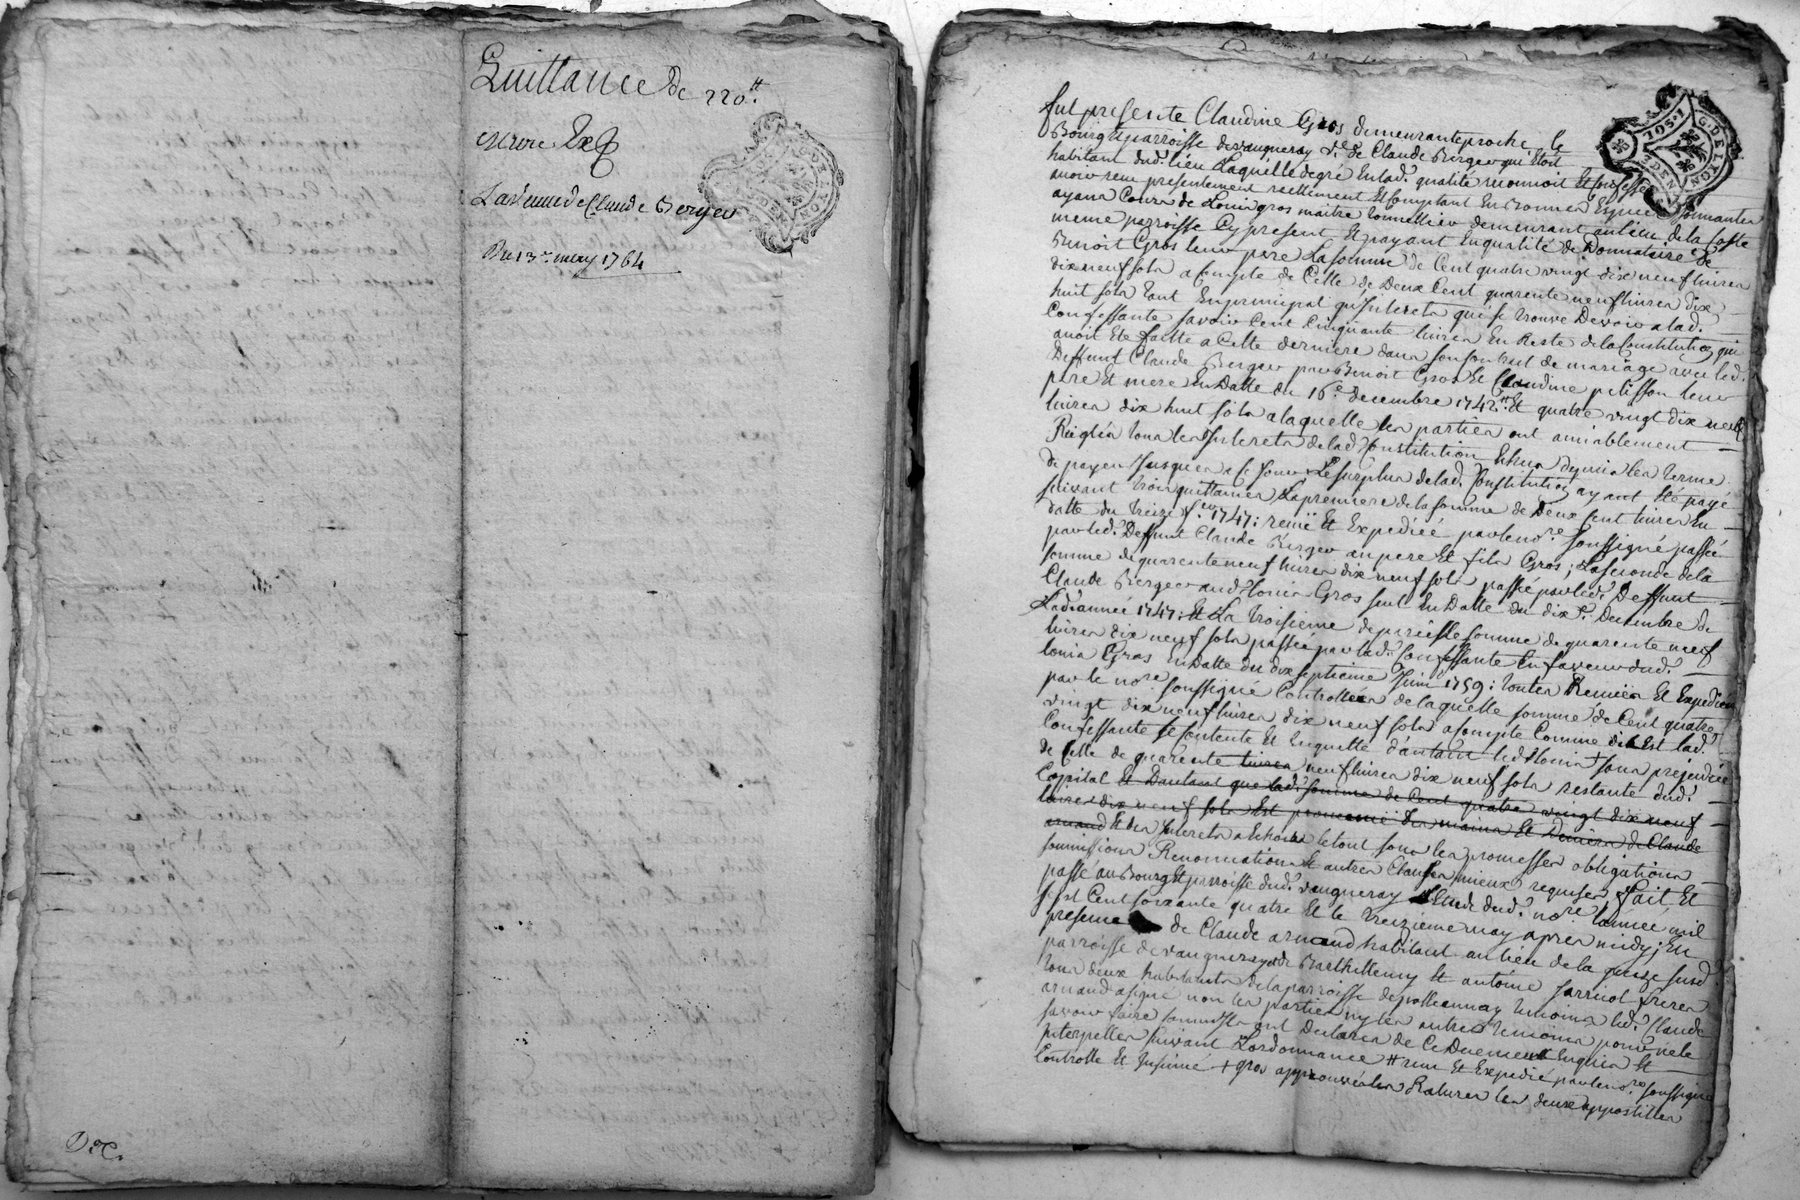 Quittance de 220#.
Laveuve de Claude Berger
Du 13e may 1764
Dec.
G. DE LYON
1. SOL
DEN
fut presente Claudine Gros demeurante proche le
Bourg et parroisse devaugneray Ve. de Claude Berger qui Etoit
habitant dud. lieu Laquelle de gré En lad. qualité reconnoit Et Confesse
avoir reçu presentement reellement Et Comptant En Bonnes Especes sonnantes
ayant Cours de Louis gros maitre tonnellier demeurant aulieu de la Coste
meme parroisse Cy present Et payant En qualité de Donnataire de
Benoit Gros leur pere La somme de Cent quatre vingt dix neuf livres
dix neuf sols acompte de Celle de Deux Cent quarente neuf livres dix
huit sols tant En principal qu'Interets qui se trouve Devoir alad.
Confessante savoir Cent Cinquante livres En Reste dela Constitution qui
avoit Eté faitte a Cette derniere dans son Contrat de mariage avec led.
Deffunt Claude Berger par Benoit Gros Et Claudine pelisson leur
pere Et mere En Datte du 16e. decembre 1742# Et quatre vingt dix neuf
livres dix huit sols alaquelle les parties ont amiablement
Reiglés tous les Interets delad. Constitution Echus depuis les terme
de payer Jusques a ce Jour Le surplus delad. Constitution ayant Eté payé
suivant trois quittances La premiere de la somme de Deux Cent livres En
datte du treize 1747: reciie Et Expediéé par le nore. soussigné passée
par led. Deffunt Claude Berger au pere Et fils Gros; La seconde dela
somme de quarente neuf livres dix neuf sols passée par led. Deffunt
Claude Berger aud. Louis Gros seul En Datte du dix Decembre de
Lad. année 1747: Et La troisieme de pareille somme de quarente neuf
livres dix neuf sols passée par lad. Confessante En faveur dud.
Louis Gros En Datte du dix septieme Juin 1759: toutes Reciies Et Expediees
par le nore. soussigné Controllées de laquelle somme de Cent quatre
vingt dix neuf livres dix neuf sols acompte Comme dit Est lad.
Confessante se Contente Et Enquitte d'autant led. Louis + sans prejudice
de Celle de quarente livres neuf livres dix neuf sols restante dud.
Capital Et Dautant que lad. somme de Cent quatre vingt dix neuf
livres dix neuf sols Est provenue des mains Et Deniers de Claude
arnaud Et des Interets a Echoir letout sous les promesses obligations
soumissions Renonciations Et autres Clauses mieux requises, fait Et
passé au Bourg Et parroisse dud. vaugneray Etude dud. nore. L'année mil
sept Cent soixante quatre Et le treizieme may apres midy; En
presence de Claude arnaud habitant au lieu de la susd.
parroisse devaugneray et de Barthellemy Et antoine Jarricot freres
tous deux habitants dela parroisse de pollionnay temoins led. Claude
arnaud a signé non les parties ny les autres temoins pour nele
savoir faire Comm'Ils ont Declarés de Ce Duement Enquis Et
Interpellés suivant Lordonnance # reçu Et Expedié par le nore. soussigné
Controllé Et Insinué + gros approuvés les Ratures les deux appostilles